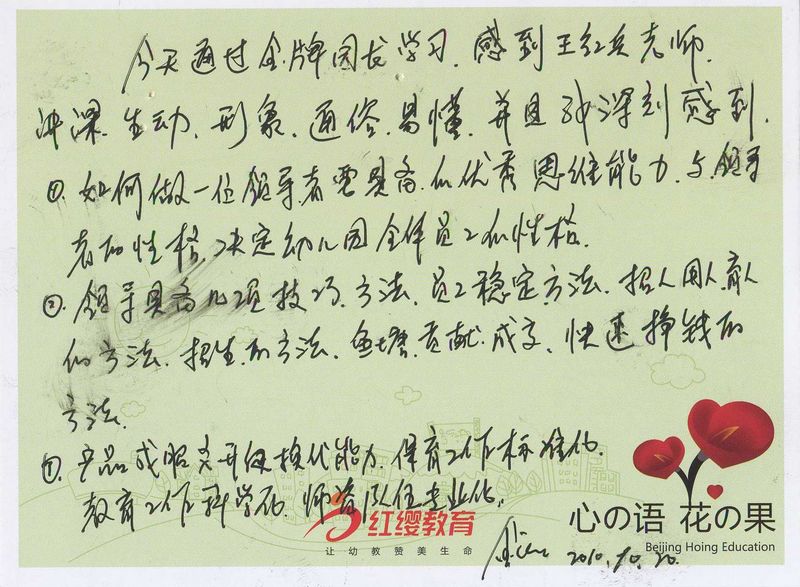 今天通过金牌园长学习.感到王红兵老师.
讲课.生动.形象.通俗.易懂.并且我深刻感到.
①.如何做一位领导者要具备的优秀思维能力.与领导
者的性格.决定幼儿园全体员工的性格.
②.领导具备几项技巧.方法.员工稳定方法.招人用人育人
的方法.招生的方法.鱼塘.贡献.成交.快速挣钱的
方法.
产品或服务升级换代能力.保育工作标准化.
教育工作科学化.师资队伍专业化.
2010.10.20.
红缨教育
让幼教赞美生命
心の语 花の果
Beijing Hoing Education